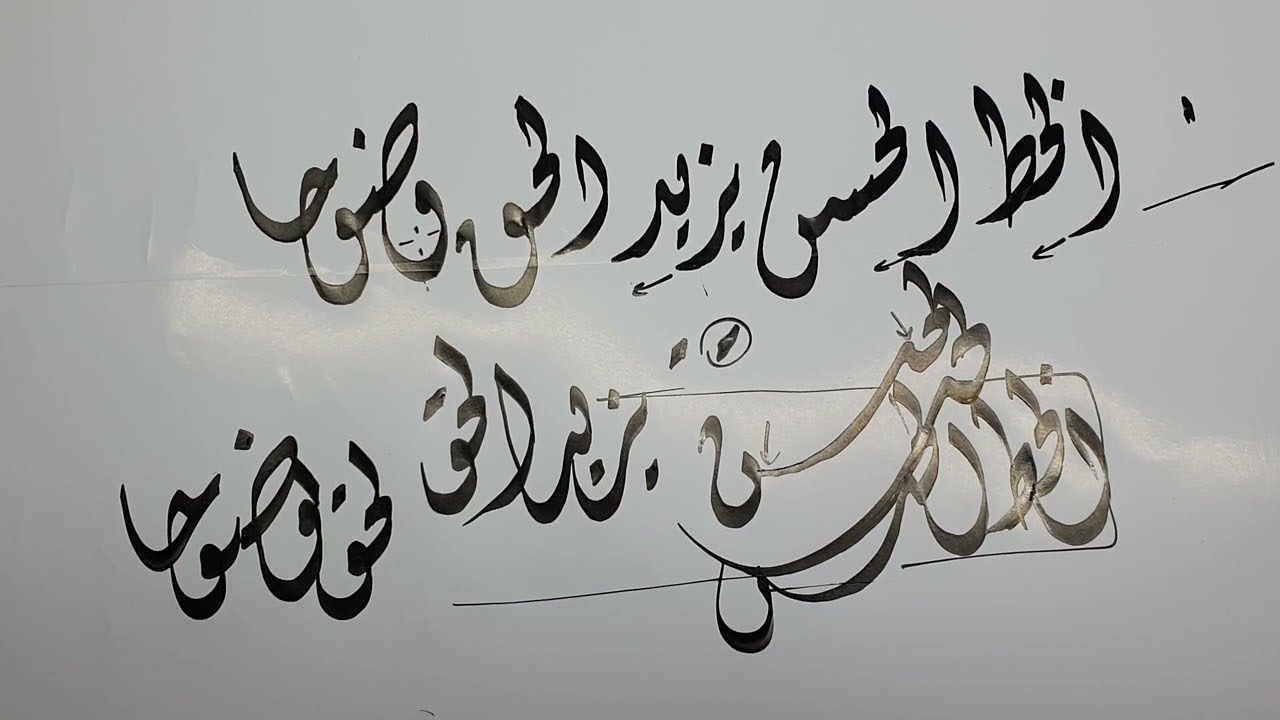 الخط الحسن يزيد الحق وضوحا
الخط الحسن يزيد الحق
لحق وضوحا